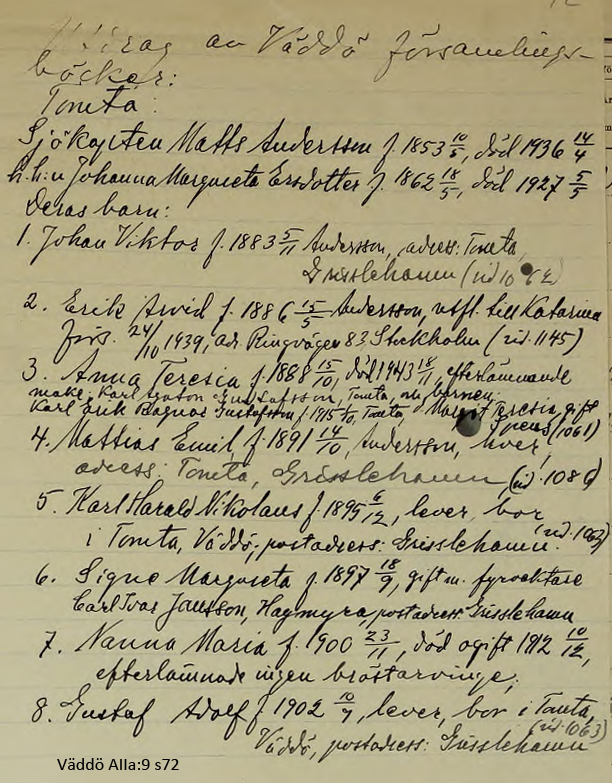 Utdrag av Väddö församlings-
böcker:
Tomta:
Sjökapten Matts Andersson f. 1853 10/5, död 1936 14/4
h.h:u Johanna Margareta Ersdotter f. 1862 18/5, död 1927 5/5
Deras barn:
1. Johan Viktor f. 1883 5/11 Andersson, adress: Tomta,
Grisslehamn (sid 10
2. Erik Arvid f. 1886 15/5 Andersson, utfl. till Katarina
förs. 24/10 1939, adr. Ringvägen 83 Stockholm (sid. 1145)
3. Anna Teresia f. 1888 15/10, död 1943 18/11, efterlämnande
make, Karl Gustafsson, Tomta, nu barnen:
Karl Erik Ragnar Gustafsson f. 1915, Tomta Margot Teresia, gift
(1061)
4. Mattias Emil, f. 1891 14/10, Andersson, lever,
adress: Tomta, Grisslehamn, (sid. 108
5. Karl Harald Nikolaus f. 1895 6/12, lever, bor
i Tomta, Väddö, postadress: Grisslehamn. (sid. 1062)
6. Signe Margareta f. 1897 18/9, gift m. fyrvaktare
Carl Ivar Jansson, Hagmyra, postadress: Grisslehamn
7. Nanna Maria f. 1900 23/11, död ogift 1912 10/12,
efterlämnade ingen bröstarvinge,
8. Gustaf Adolf f 1902 10/7, lever, bor i Tomta,
Väddö, postadress: Grisslehamn (sid. 1063)
Väddö Alla:9 s72